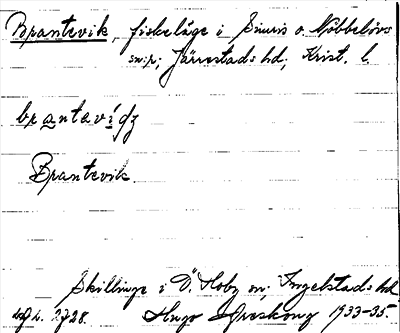 Brantevik, fiskeläge i Simris o. Nöbbelövs
snr; Järrestads hd; Krist. l.
brantaví
Brantevik.
Skillinge i Ö. Hoby sn; Ingelstads hd
2728. Hugo Areskoug 1933-35.